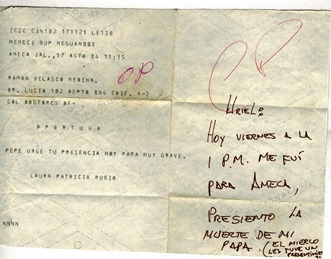 ZCZC CJNT02 171121 LE150
MEMECI SUP MEGUAMOBI
AMECA JAL., 17 AGO 84 11:15
RAMON VELASCO MEDINA,
DR. LUCIO 102 DEPTO 504 EDIF. A-2
COL DOCTORES DF.
OPORTUNO
PEPE URGE TU PRESENCIA HOY PAPA MUY GRAVE.
LAURA PATRICIA RUBIO
NNNN
URIEL:
HOY VIERNES A LA
1 P.M. ME FUÍ
PARA AMECA,
PRESIENTO LA
MUERTE DE MI
PAPA. (EL MIERCO
LES TUVE UN